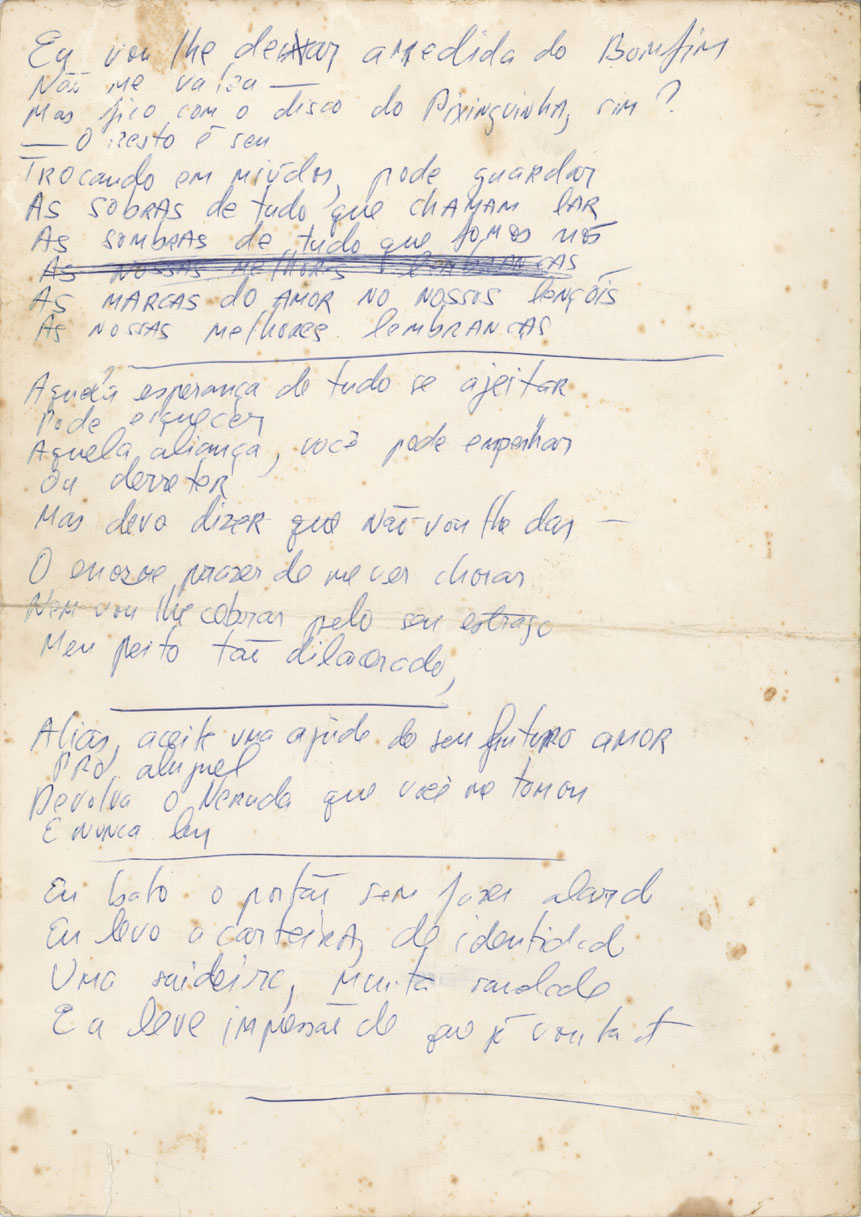 Eu vou lhe deixar a medida do Bomfim
Não me valeu —
Mas fico com o disco do Pixinguinha, sim?
— O resto é seu
Trocando em miúdos, pode guardar
As sobras de tudo que chamam lar
As sombras de tudo que fomos nós
As nossas melhores lembranças
As marcas do amor no nossos lençóis
As nossas melhores lembranças
Aquela esperança de tudo se ajeitar
Pode esquecer
Aquela aliança, você pode empenhar
Ou derreter
Mas devo dizer que não vou lhe dar —
O enorme prazer de me ver chorar
Nem vou lhe cobrar pelo seu estrago
Meu peito tão dilacerado,
Aliás, aceite uma ajuda do seu futuro amor
Pro aluguel
Devolva o Neruda que você me tomou
E nunca leu
Eu bato o portão sem fazer alarde
Eu levo a carteira, de identidade
Uma saideira, muita saudade
E a leve impressão de que já vou tarde